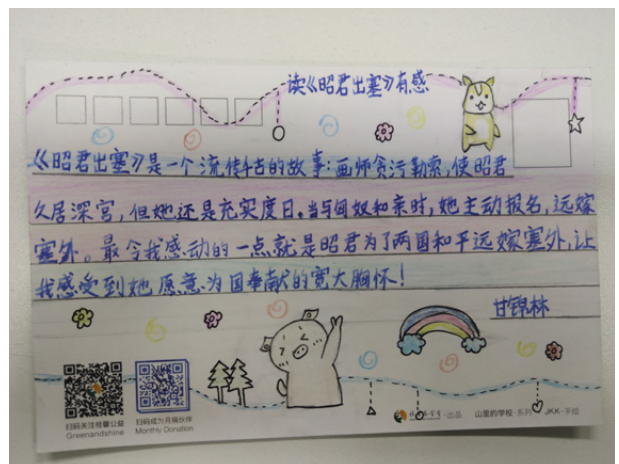 读《昭君出塞》有感
《昭君出塞》是一个流传千古的故事:画师贪污勒索,使昭君
久居深宫,但她还是充实度日。当与匈奴和亲时,她主动报名,远嫁
塞外。最令我感动的一点就是昭君为了两国和平远嫁塞外,让
我感受到她愿意为国奉献的宽大胸怀!
甘锦林
扫码关注桂馨公益
Greenandshine
扫码成为月捐伙伴
Monthly Donation
出品
山里的学校·系列
JKK·手绘